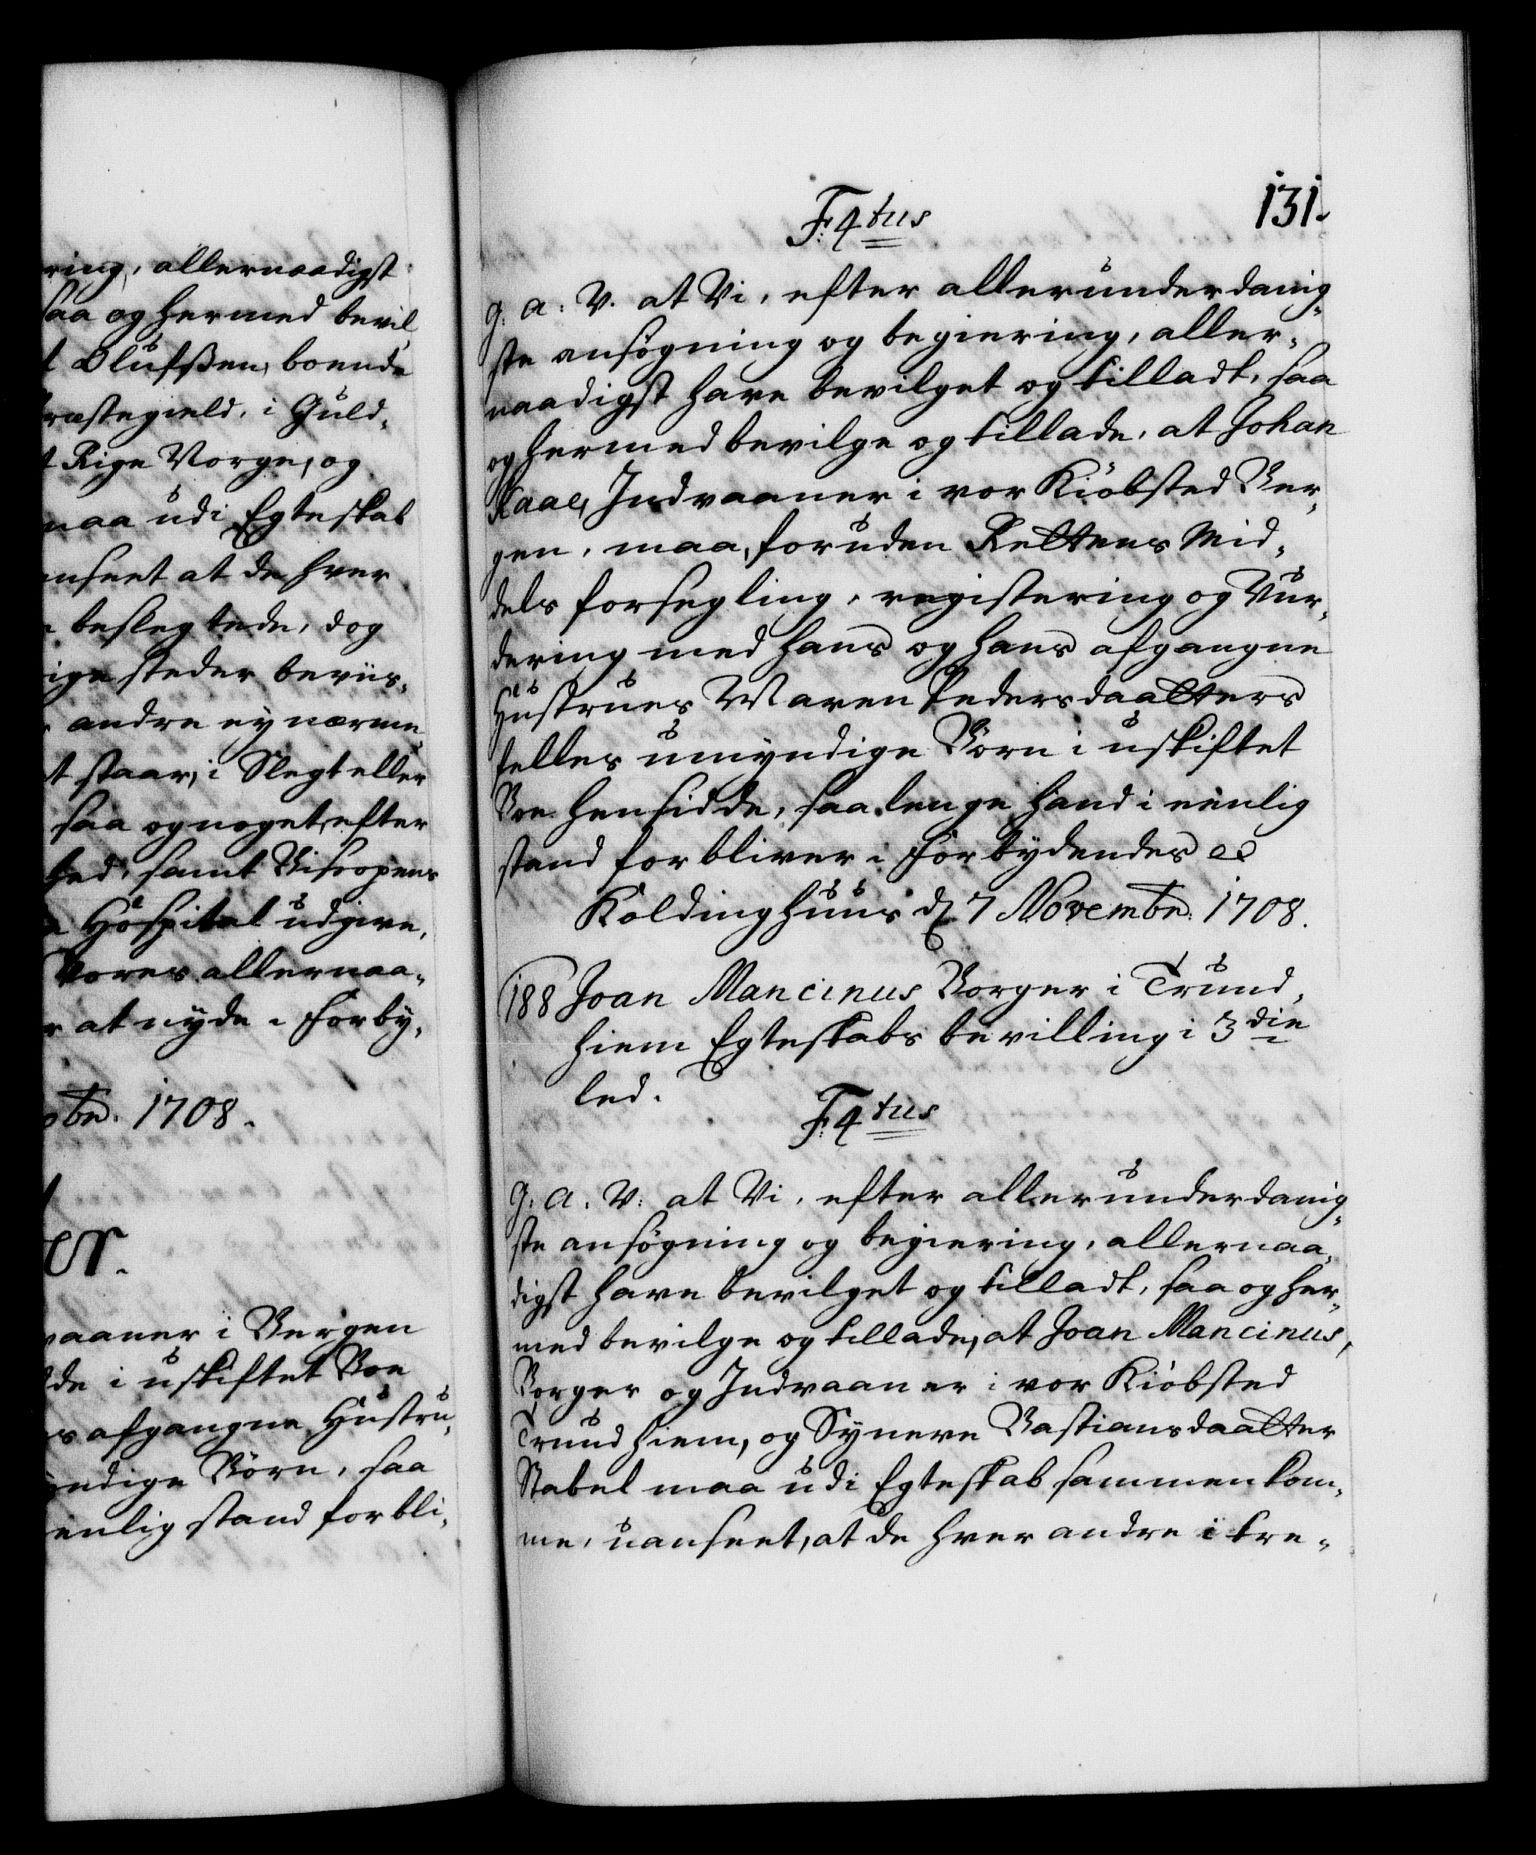 ring, allernaadigst
saa og hermed bevil¬
l Olufsßen, boende
ræstegield, i Guld¬
t Rige Norge, og
maa udi Egteskab
anseet at de hver
beslegtede, dog
ige steder beviis¬
andre ey nærme¬
t staar, i Slegt eller
saa og noget efter
hed, samt Biscopens
Hospital udgive,
Vores allernaa¬
r at nyde. Forby¬
obr. 1708.
er.
vaaner i Bergen
de i uskiftet Boe
s afgangne Hustru¬
yndige Börn, saa
enlig stand forbli¬
131.
F. 4tus
g. a. V. at Vi, efter allerunderdanig¬
ste ansøgning og begiering, aller¬
naadigst have bevilget og tilladt, saa
og hermed bevilge og tillade, at Johan
Kaae, Indvaaner i vor Kiöbsted Ber¬
gen, maa, foruden Rettens Mid¬
dels forsegling, registering og Vur¬
dering med hans og hans afgangne
Hustrues Maren Pedersdaatters
felles umyndige Börn i uskiftet
Boe hensidde, saa lenge hand i eenlig
stand forbliver. Forbydendes etc
Koldinghuus d. 7 Novembr. 1708.
188 Joan Mancinus Borger i Trund¬
hiem Egteskabs bevilling i 3die
led.
F. 4tus
G. A. V. at Vi, efter allerunderdanig¬
ste ansøgning og begiering, allernaa¬
digst have bevilget og tilladt, saa og her¬
med bevilge og tillade, at Joan Mancinus,
Borger og Indvaaner i vor Kiöbsted
Trundhiem, og Synneve Bastiansdaatter
Stabel maa udi Egteskab sammenkom¬
me, uanseet, at de hver andre i tre¬